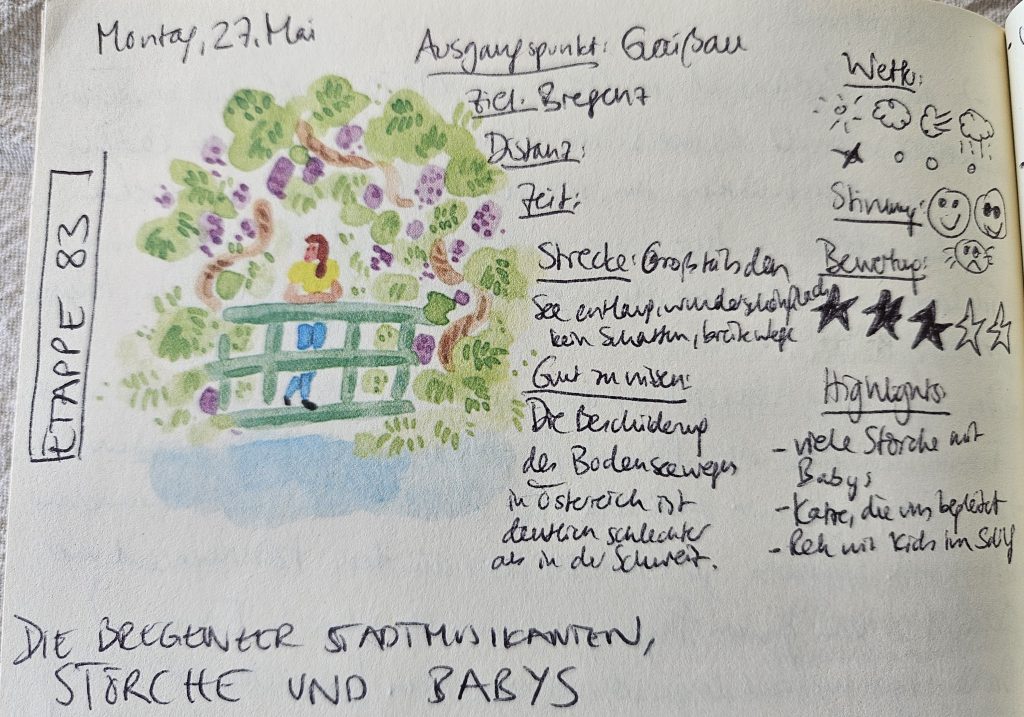 Montag, 27. Mai
ETAPPE 83
Ausgangspunkt: Gaißau
Ziel: Bregenz
Distanz:
Zeit:
Strecke: Großteils den
See entlang, wunderschön, flach
kein Schatten, breite Wege
Gut zu wissen:
Die Beschilderung
des Bodenseeweges
in Österreich ist
deutlich schlechter
als in der Schweiz.
Wetter:
Stimmung:
Bewertung:
Highlights:
- viele Störche mit
Babys
- Katze, die uns begleitet
- Reh mit Kids im Schilf
DIE BREGENZER STADTMUSIKANTEN,
STÖRCHE UND BABYS